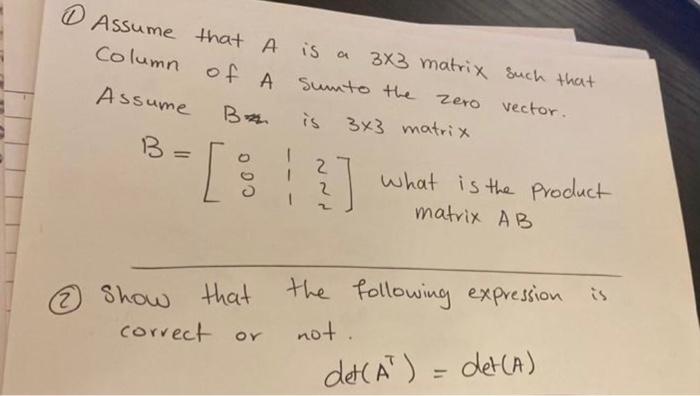 ① Assume that A is a 3x3 matrix such that
Column of A sumto the zero vector.
Assume B is 3x3 matrix
B = [ 0 1 2
0 1 2
0 1 2 ] what is the product
matrix AB
② Show that the following expression is
correct or not.
det(Aᵀ) = det(A)